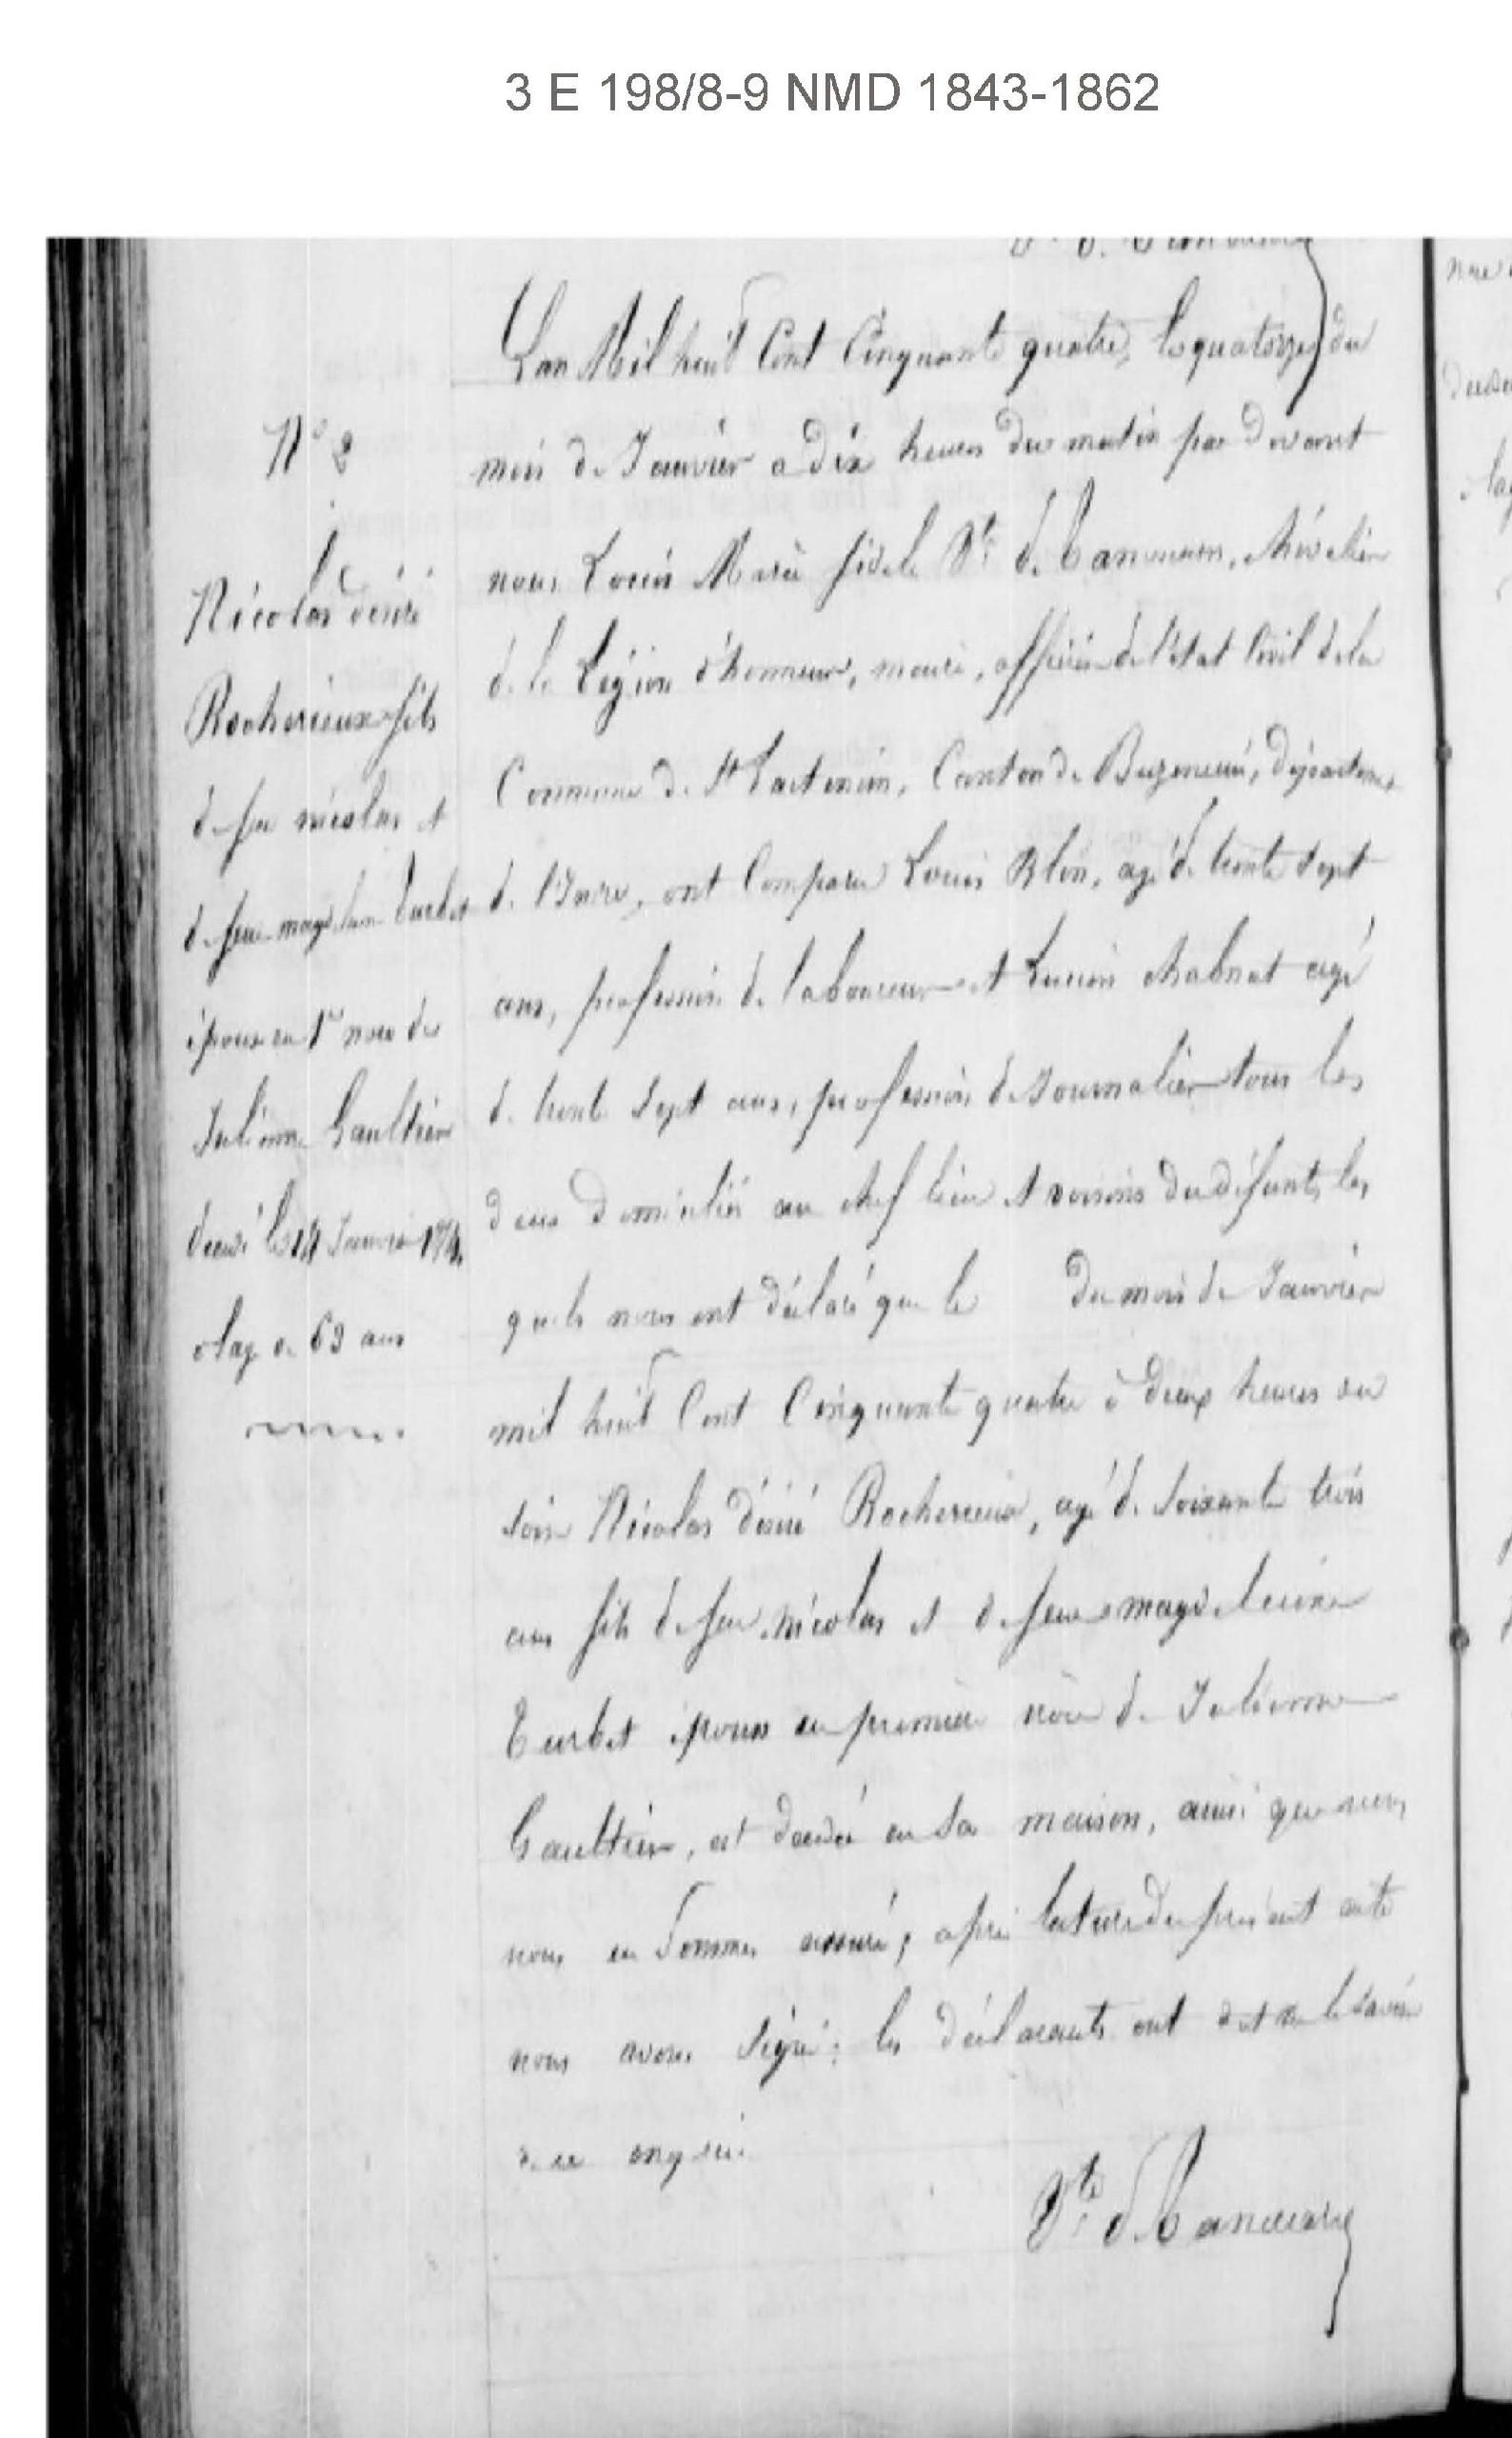 3 E 198/8-9 NMD 1843-1862
Lan Mil huit Cent Cinquante quatre, le quatorze du
mois de Janvier a dix heures du matin par devant
nous Louis Marie fidele Vte de chévalier
de la Légion d'honneur, maire, officier de l'état Civil de la
Commune de St Lactencin, Canton de Buzencais, départemt
de l'Indre, ont Comparu Louis Blin, agé de trente Sept
ans, profession de laboureur et Lucien Chabnat agé
de trente Sept ans, profession de Journalier tous les
deux domiciliés au chef lieu et voisins du défunt, les
quels nous ont déclaré que le du mois de Janvier
mil huit Cent Cinquante quatre à deux heures du
soir Nicolas désiré Rocherieux, agé de Soixante trois
ans fils de feu Nicolas et de feue magdeleine
Turbet époux en première noce de Julienne
Gaultier, est décédé en Sa maison, ainsi que nous
nous en Sommes assuré; après lecture du présent acte
nous avons Signé; les déclarants ont dit ne le Savoir
de ce enquis.
Vte de
N° 2
Nicolas désiré
Rocherieux fils
de feu nicolas et
de feue magdelaine Turbet
époux en 1re noce de
Julienne Gaultier
décédé le 14 Janvier
Agé de 63 ans